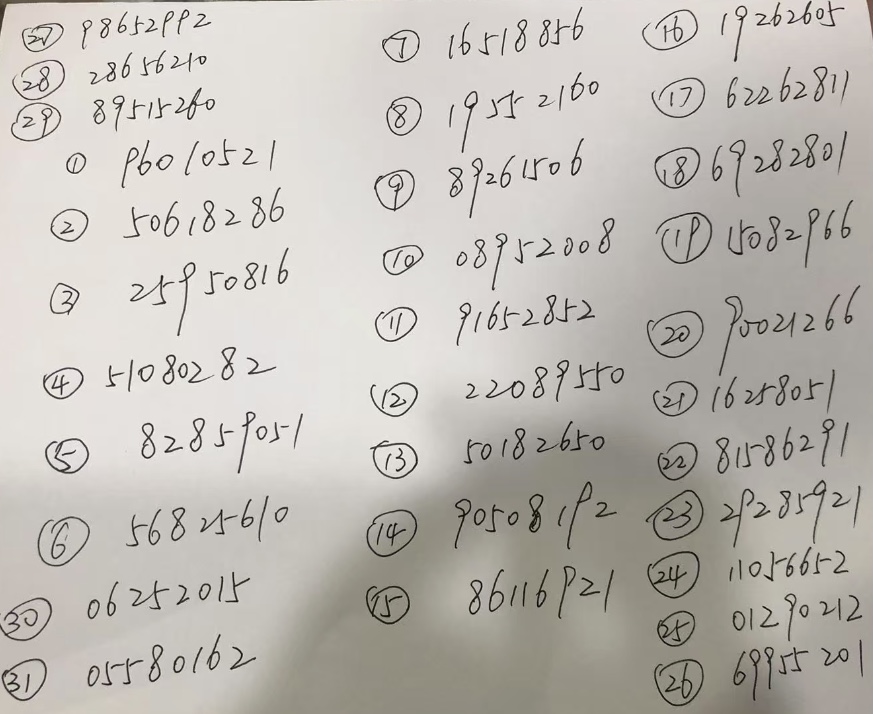 ㉗ 98652992
㉘ 28656210
㉙ 89515260
① 96010521
② 50618286
③ 25950816
④ 51080282
⑤ 82859051
⑥ 56825610
㉚ 06252015
㉛ 05580162
⑦ 16518856
⑧ 19552160
⑨ 89261506
⑩ 08952008
⑪ 91652852
⑫ 22089550
⑬ 50182650
⑭ 90508192
⑮ 86116921
⑯ 19262605
⑰ 62262811
⑱ 69282801
⑲ 15082966
⑳ 90021266
㉑ 16258051
㉒ 81586291
㉓ 29285921
㉔ 11056652
㉕ 01290212
㉖ 69955201